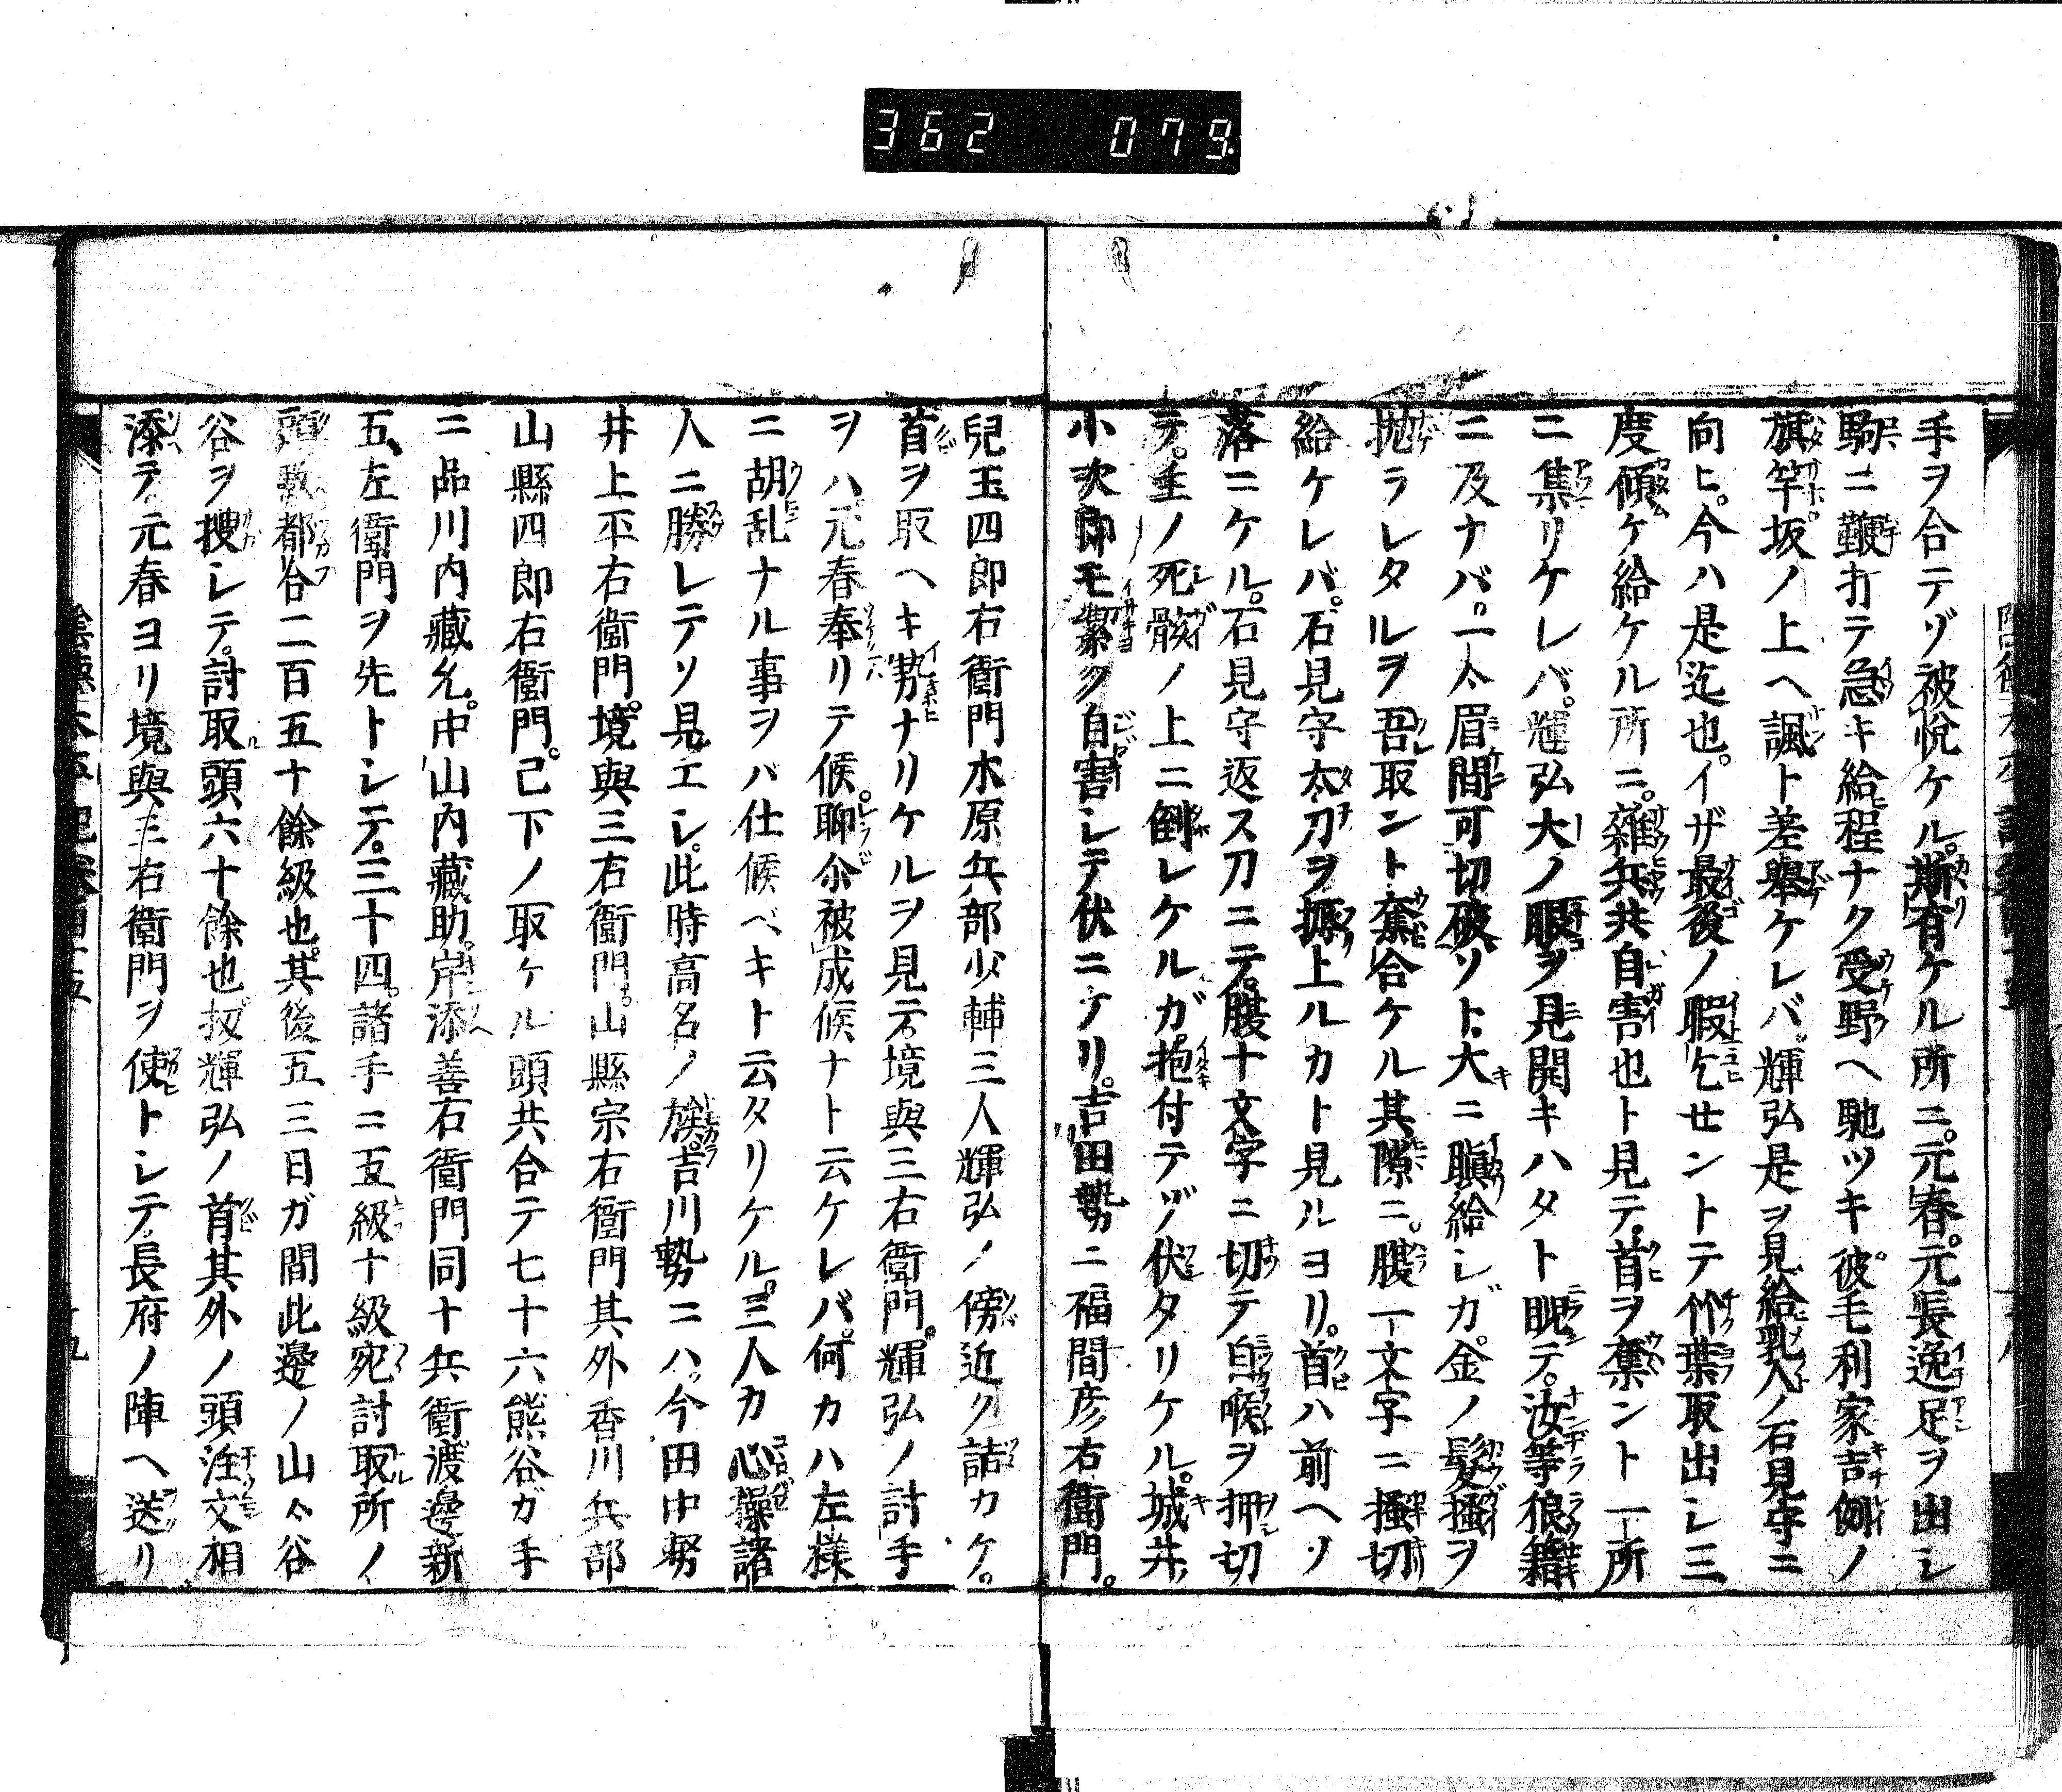 362 079
手ヲ合テゾ被悦ケル。斯有ケル所ニ。元春。元長逸足ヲ出シ
駒ニ鞭打テ急キ給程ナク受野ヘ馳ツキ彼毛利家吉例ノ
旗竿坂ノ上ヘ諷ト差舉ケレバ。輝弘是ヲ見給乳人ノ石見守ニ
向ヒ。今ハ是迄也。イザ最後ノ暇乞セントテ竹葉取出シ三
度傾ケ給ケル所ニ。雑兵共自害也ト見テ。首ヲ奪ント一所
ニ集リケレバ。輝弘大ノ眼ヲ見開キハタト睨テ。汝等狼籍
ニ及ナバ。一々眉間可切破ソト。大ニ瞋給シガ。金ノ髪掻ヲ
抛ラレタルヲ吾取ント奪合ケル其隙ニ。腹一文字ニ掻切
給ケレバ。石見守太刀ヲ振上ルカト見ルヨリ。首ハ前ヘソ
落ニケル。石見守返ス刀ニテ。腹十文字ニ切テ自喉ヲ押切
テ。主ノ死骸ノ上ニ倒レケルガ。抱付テゾ伏タリケル。城井
小次郎モ潔ク自害シテ伏ニケリ。吉田勢ニ福間彦右衛門。
兒玉四郎右衛門木原兵部少輔三人輝弘ノ傍近ク詰カケ。
首ヲ取ヘキ勢ナリケルヲ見テ。境與三右衛門。輝弘ノ討手
ヲハ。元春奉リテ候。聊尓被成候ナト云ケレバ。何カハ左様
ニ胡乱ナル事ヲバ仕候ベキト云タリケル。三人カ心操諸
人ニ勝レテソ見エシ。此時高名ノ族。吉川勢ニハ。今田中努
井上平右衛門。境與三右衛門。山縣宗右衛門其外香川兵部
山縣四郎右衛門。己下ノ取ケル頭共合テ七十六熊谷ガ手
ニ品川内藏允。中山内藏助。岸添善右衛門同十兵衛渡邊新
五左衛門ヲ先トシテ。三十四。諸手ニ五級十級宛討取所ノ
頭数都合二百五十餘級也。其後五三日ガ間此邊ノ山々谷
谷ヲ捜シテ。討取頭六十餘也。扨輝弘ノ首其外ノ頭注文相
添テ。元春ヨリ境與三右衛門ヲ使トシテ。長府ノ陣ヘ送リ